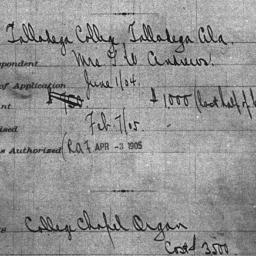 Talladega College Talladega Ala.
Mrs F. W. Andrews.
spondent
of Application June 1/04.
nt $1000 (last half of
ised Feb 7/05.
s Authorized (RaF APR -3 1905
College Chapel Organ
Cost $3500